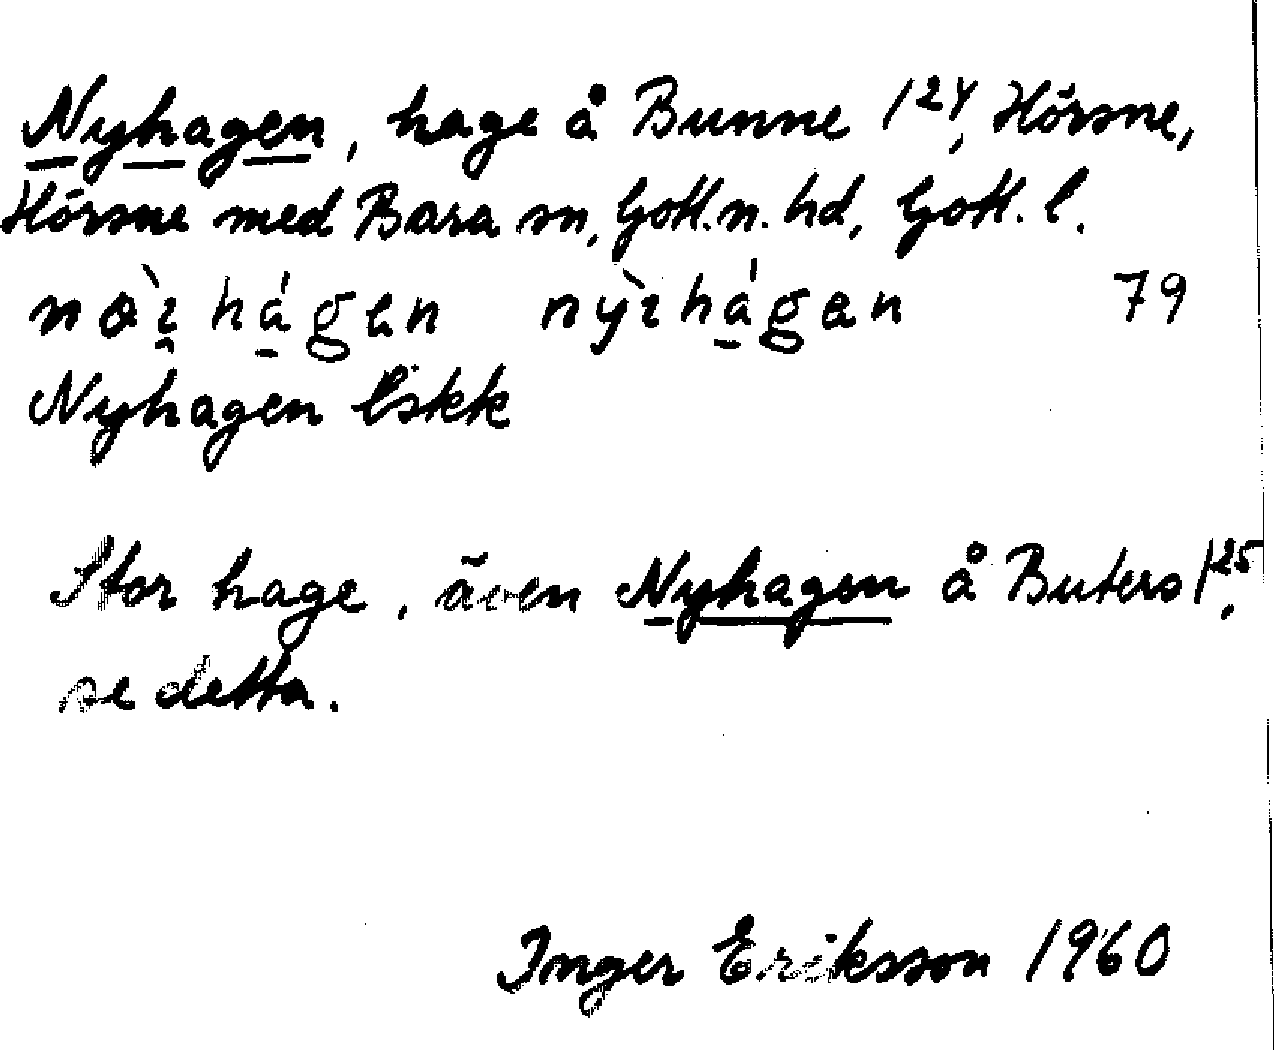 Nyhagen, hage å Bunne 1²⁴, Hörsne,
Hörsne med Bara sn, Gotl.n. hd, Gotl. l.
79
Nyhagen Eskk
Stor hage, även Nyhagen å Buters 1²⁵,
se detta.
Inger Eriksson 1960